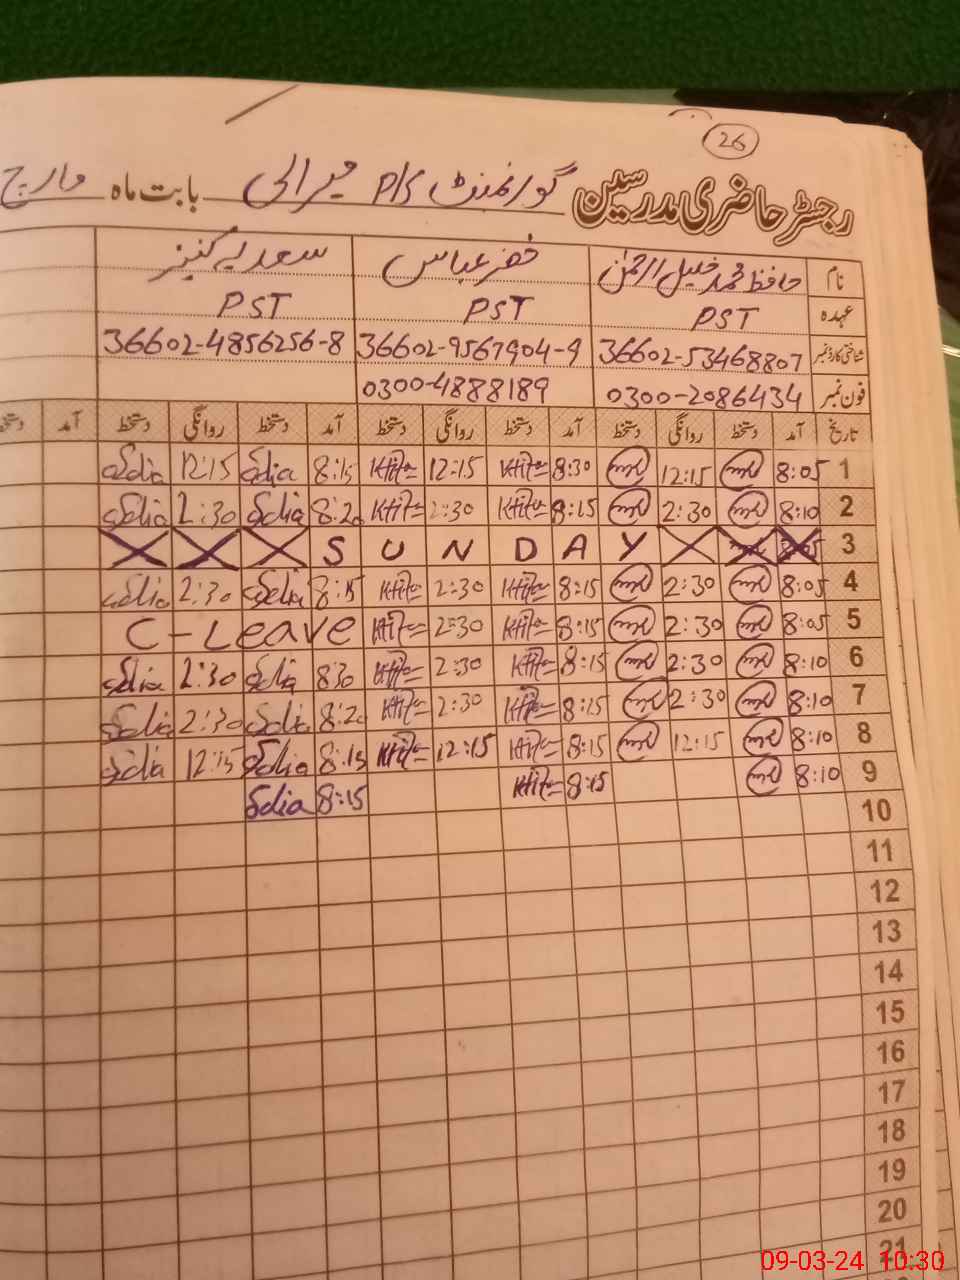 26
رجسٹر حاضری مدرسین گورنمنٹ P/S میرالی بابت ماہ مارچ
نام حافظ محمد خلیل الرحمٰن خضر عباس سعدیہ کنیز
عہدہ PST PST PST
شناختی کارڈ نمبر 36602-53468807 36602-9567904-9 36602-4856256-8
فون نمبر 0300-2086434 0300-4888189
تاریخ آمد دستخط روانگی دستخط آمد دستخط روانگی دستخط آمد دستخط روانگی دستخط آمد
1 8:05 12:15 8:30 12:15 8:15 Sdia 12:15 Sdia
2 8:10 2:30 8:15 2:30 8:20 Sdia 2:30 Sdia
3 8:05 SUNDAY
4 8:05 2:30 8:15 2:30 8:15 Sdia 2:30 Sdia
5 8:05 2:30 8:15 2:30 C-Leave
6 8:10 2:30 8:15 2:30 8:30 Sdia 2:30 Sdia
7 8:10 2:30 8:15 2:30 8:20 Sdia 2:30 Sdia
8 8:10 12:15 8:15 12:15 8:15 Sdia 12:15 Sdia
9 8:10 8:15 8:15 Sdia
10
11
12
13
14
15
16
17
18
19
20
21
09-03-24 10:30